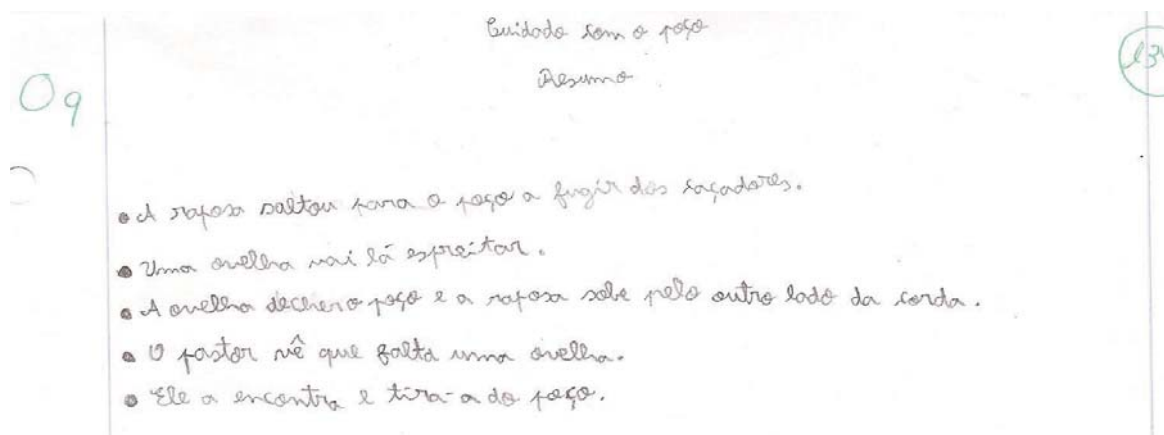 Cuidado com o poço
Resumo
O 9
• A raposa saltou para o poço a fugir dos caçadores.
• Uma ovelha vai lá espreitar.
• A ovelha o poço e a raposa sobe pelo outro lado da corda.
• O pastor vê que falta uma ovelha.
• Ele a encontra e tira-a do poço.